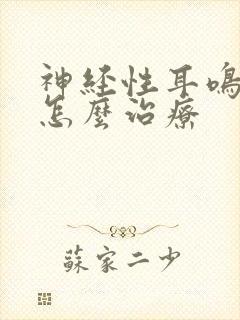 神経性耳鳴
怎麼治療
蘇家二少